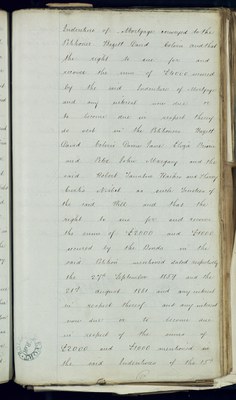 Indenture of Mortgage conveyed to the
Petitioner Pryett David Holmes and that
the right to sue for and
recover the sum of secured
by the said Indenture of Mortgage
and any interest now due or
to become due in respect thereof
do vest in the Petitioners
David Lane Lloyd
and John and the
said Robert and
as such Trustees of
the said Will and that the
right to sue for and recover
the sums of £2000 and £1000
secured by the Bonds in the
said Petition mentioned dated respectively
the 27th September 1859 and the
21st August 1861 and any interest
in respect thereof and any interest
now due or to become due
in respect of the sums of
£2000 and £1000 mentioned in
the said Indentures of the 15th